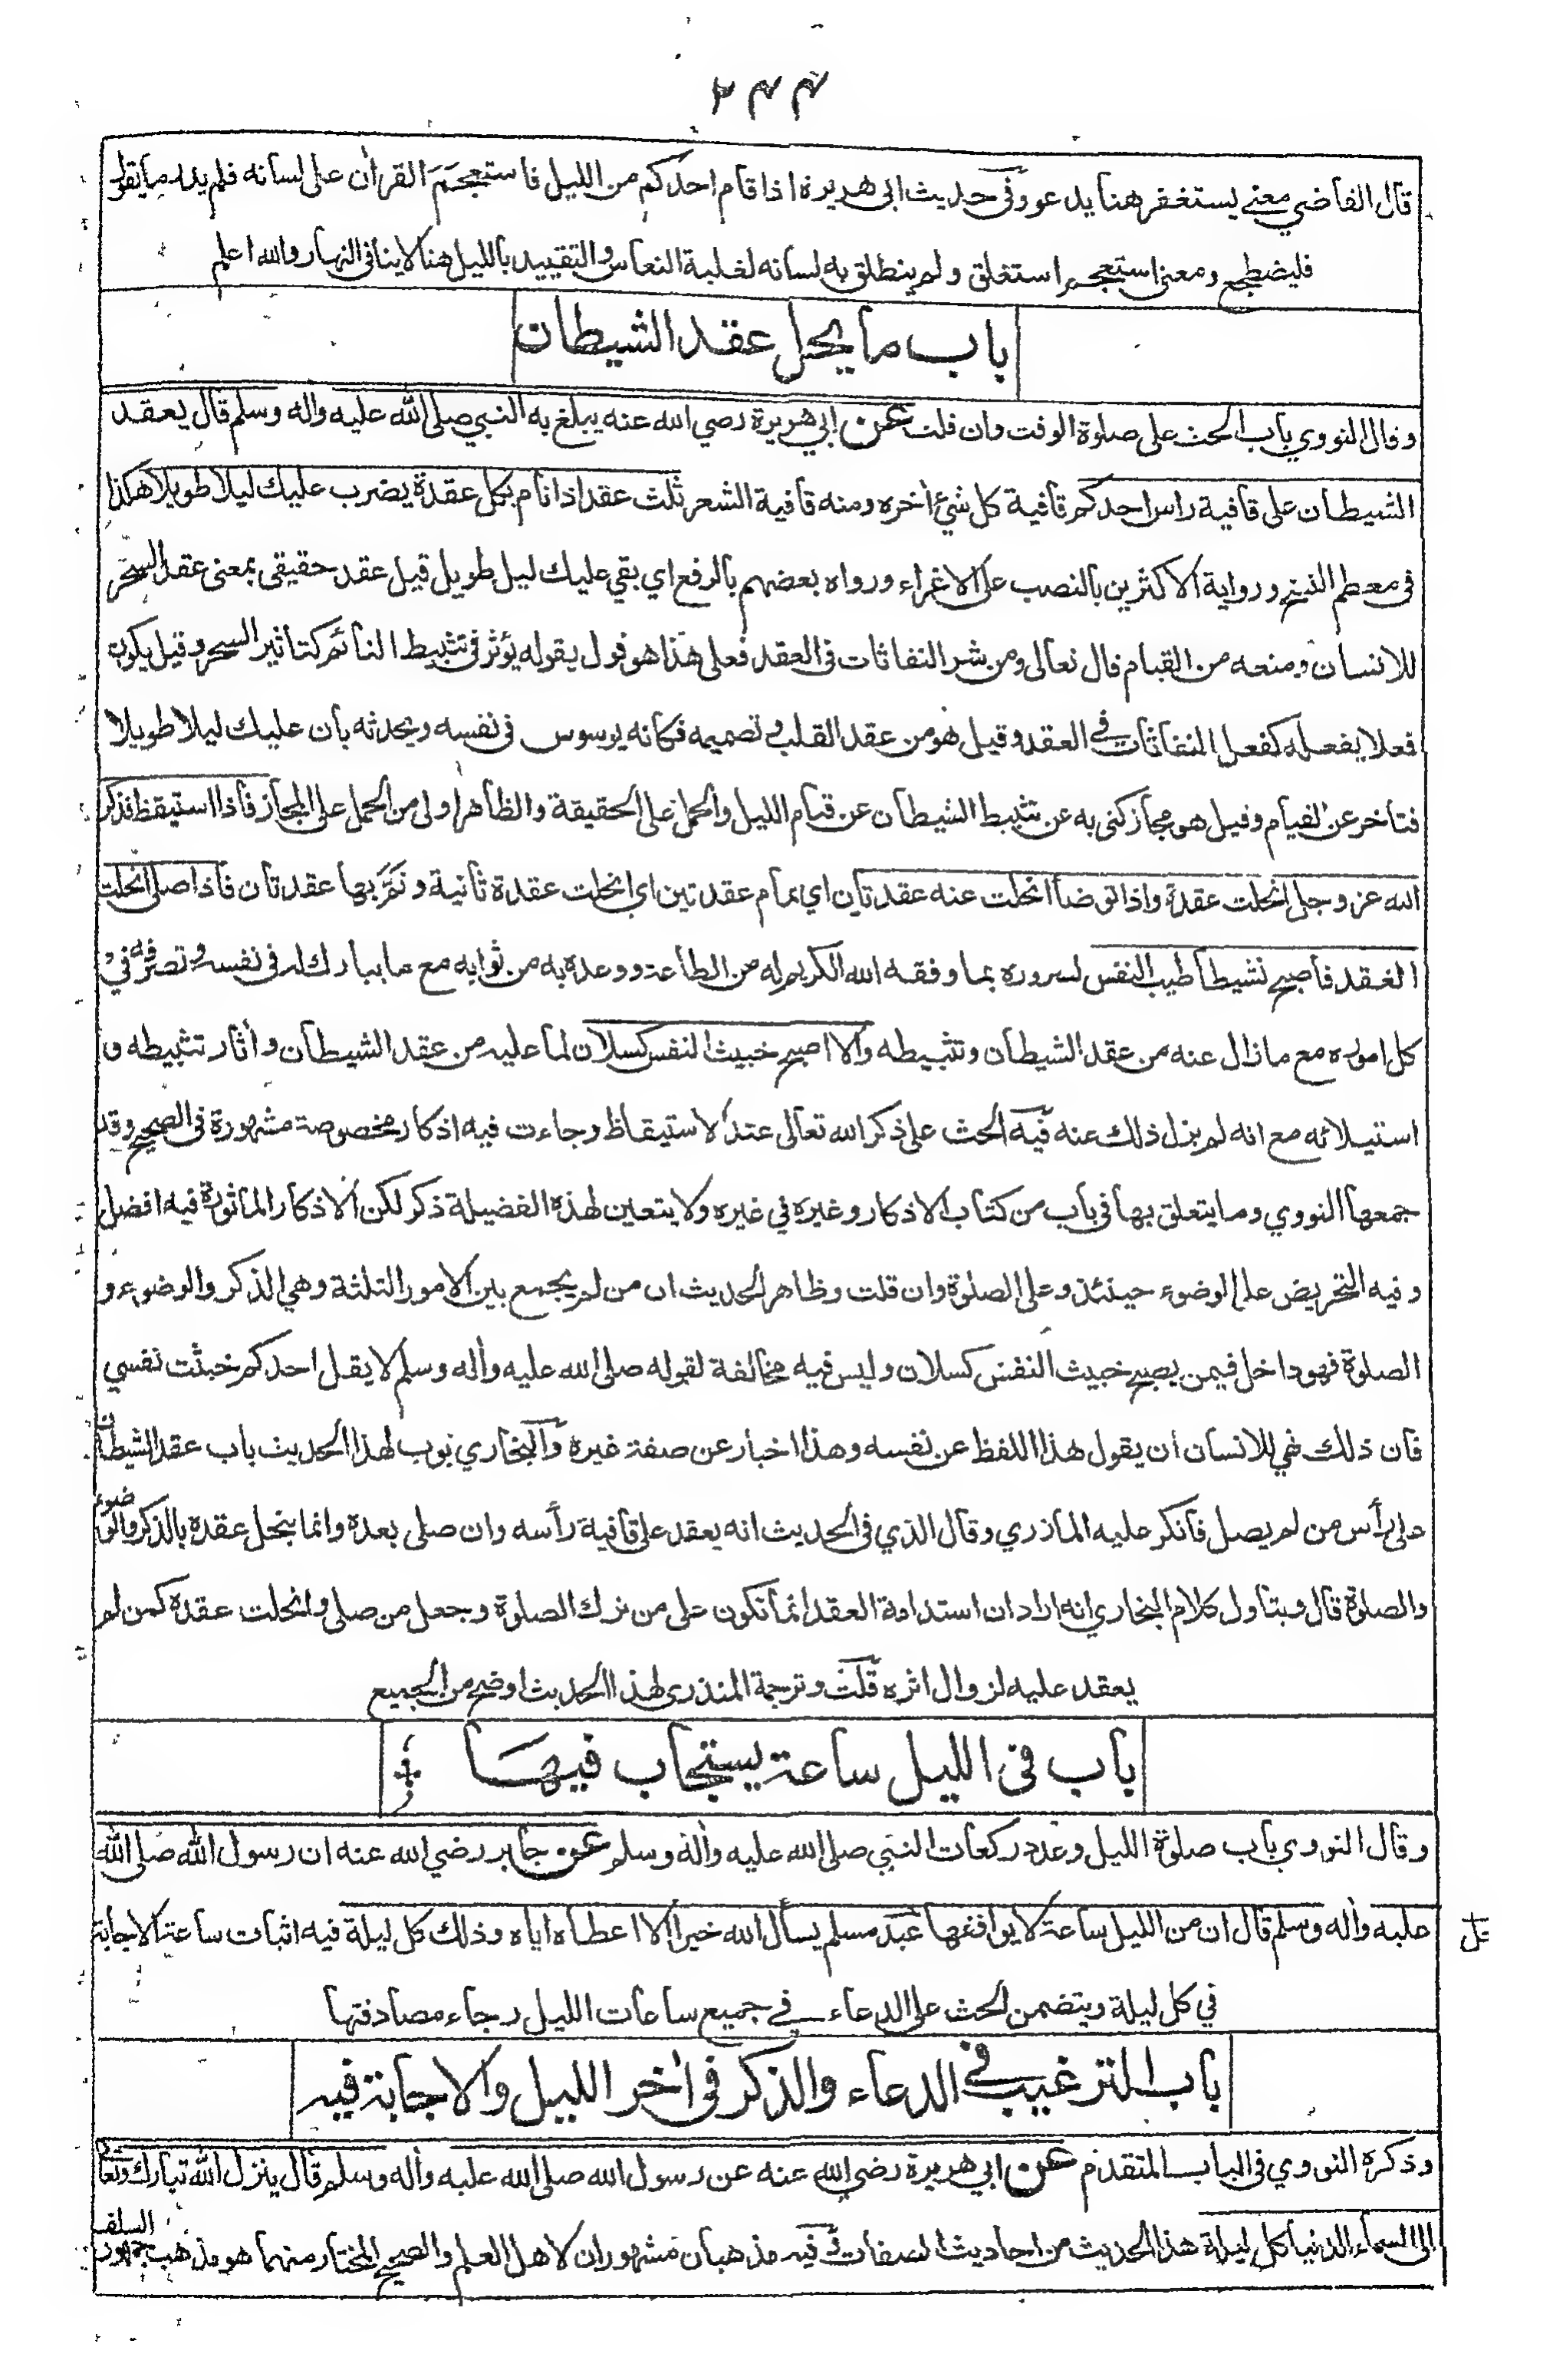 ٢٤٤
قال القاضي معنى يستغفر هنا يدعو وفي حديث ابي هريرة اذا قام احدكم من الليل فاستعجم القرأن على لسانه فلم يدر ما يقول
فليضطجع ومعنى استعجم استغلق ولم ينطلق به لسانه لغلبة النعاس والتقييد بالليل هنا لا ينافي النهار والله اعلم
باب ما يحل عقد الشيطان
وقال النووي باب الحث على صلوة الوقت وان قلت عن ابي هريرة رضي الله عنه يبلغ به النبي صلى الله عليه واله وسلم قال يعقد
الشيطان على قافية راس احدكم قافية كل شيء أخره ومنه قافية الشعر ثلث عقد اذا نام بكل عقدة يضرب عليك ليلا طويلا هكذا
في معظم النسخ ورواية الاكثرين بالنصب على الاغراء ورواه بعضهم بالرفع اي بقي عليك ليل طويل قيل عقد حقيقي بمعنى عقد السحر
للانسان ومنعه من القيام قال تعالى ومن شر النفاثات في العقد فعلى هذا هو قول يقوله يؤثر في تثبيط النائم كتاثير السحر وقيل يكون
فعلا يفعله كفعل النفاثات في العقد وقيل هو من عقد القلب وتصميمه فكانه يوسوس في نفسه ويحدثه بان عليك ليلا طويلا
فتاخر عن القيام وقيل هو مجاز كني به عن تثبيط الشيطان عن قيام الليل والحمل على الحقيقة والظاهر اولى من الحمل على المجاز فاذا استيقظ فذكر
الله عز وجل انحلت عقدة واذا توضأ انحلت عنه عقدتان اي تمام عقدتين اي انحلت عقدة ثانية وتم بها عقدتان فاذا صلى انحلت
العقد فاصبح نشيطا طيب النفس لسروره بما وفقه الله الكريم له من الطاعة ووعده به من ثوابه مع ما يبارك له في نفسه وتصرفه في
كل اموره مع ما زال عنه من عقد الشيطان وتثبيطه والا اصبح خبيث النفس كسلان لما عليه من عقد الشيطان وأثار تثبيطه و
استيلائه مع انه لم يزل ذلك عنه فيه الحث على ذكر الله تعالى عند الاستيقاظ وجاءت فيه اذكار مخصوصة مشهورة في الصحيح وقد
جمعها النووي وما يتعلق بها في باب من كتاب الاذكار وغيره في غيره ولا يتعين لهذه الفضيلة ذكر لكن الاذكار الماثورة فيه افضل
وفيه التحريض على الوضوء حينئذ وعلى الصلوة وان قلت وظاهر الحديث ان من لم يجمع بين الامور الثلثة وهي الذكر والوضوء و
الصلوة فهو داخل فيمن يصبح خبيث النفس كسلان وليس فيه مخالفة لقوله صلى الله عليه واله وسلم لا يقل احدكم خبثت نفسي
فان ذلك نهي للانسان أن يقول هذا اللفظ عن نفسه وهذا اخبار عن صفة غيره والبخاري بوب لهذا الحديث باب عقد الشيطان
على رأس من لم يصل فأنكر عليه المازري وقال الذي في الحديث انه يعقد على قافية رأسه وان صلى بعده وانما ينحل عقده بالذكر والوضوء
والصلوة قال ويتأول كلام البخاري انه اراد ان استدامة العقد انما تكون على من ترك الصلوة وجعل من صلى وانحلت عقده كمن لم
يعقد عليه لزوال اثره قلت وترجمة المنذري لهذا الحديث اوضح من الجميع
باب في الليل ساعة يستجاب فيها
وقال النووي باب صلوة الليل وعدد ركعات النبي صلى الله عليه واله وسلم عن جابر رضي الله عنه ان رسول الله صلى الله
عليه واله وسلم قال ان من الليل ساعة لا يوافقها عبد مسلم يسأل الله خيرا الا اعطاه اياه وذلك كل ليلة فيه اثبات ساعة الاجابة
في كل ليلة ويتضمن الحث على الدعاء في جميع ساعات الليل رجاء مصادفتها
باب الترغيب في الدعاء والذكر في أخر الليل والاجابة فيه
وذكره النووي في الباب المتقدم عن ابي هريرة رضي الله عنه عن رسول الله صلى الله عليه واله وسلم قال ينزل الله تبارك وتعالى
الى السماء الدنيا كل ليلة هذا الحديث من احاديث الصفات وفيه مذهبان مشهوران لاهل العلم والصحيح المختار منهما هو مذهب جمهور السلف